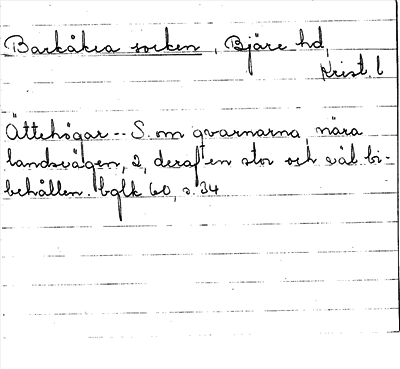 Barkåkra socken, Bjäre hd,
Krist. l
Ättehögar -- S. om qvarnarna, nära
landsvägen, 2, deraf en stor och väl bi-
behållen. bglk 60, s. 34